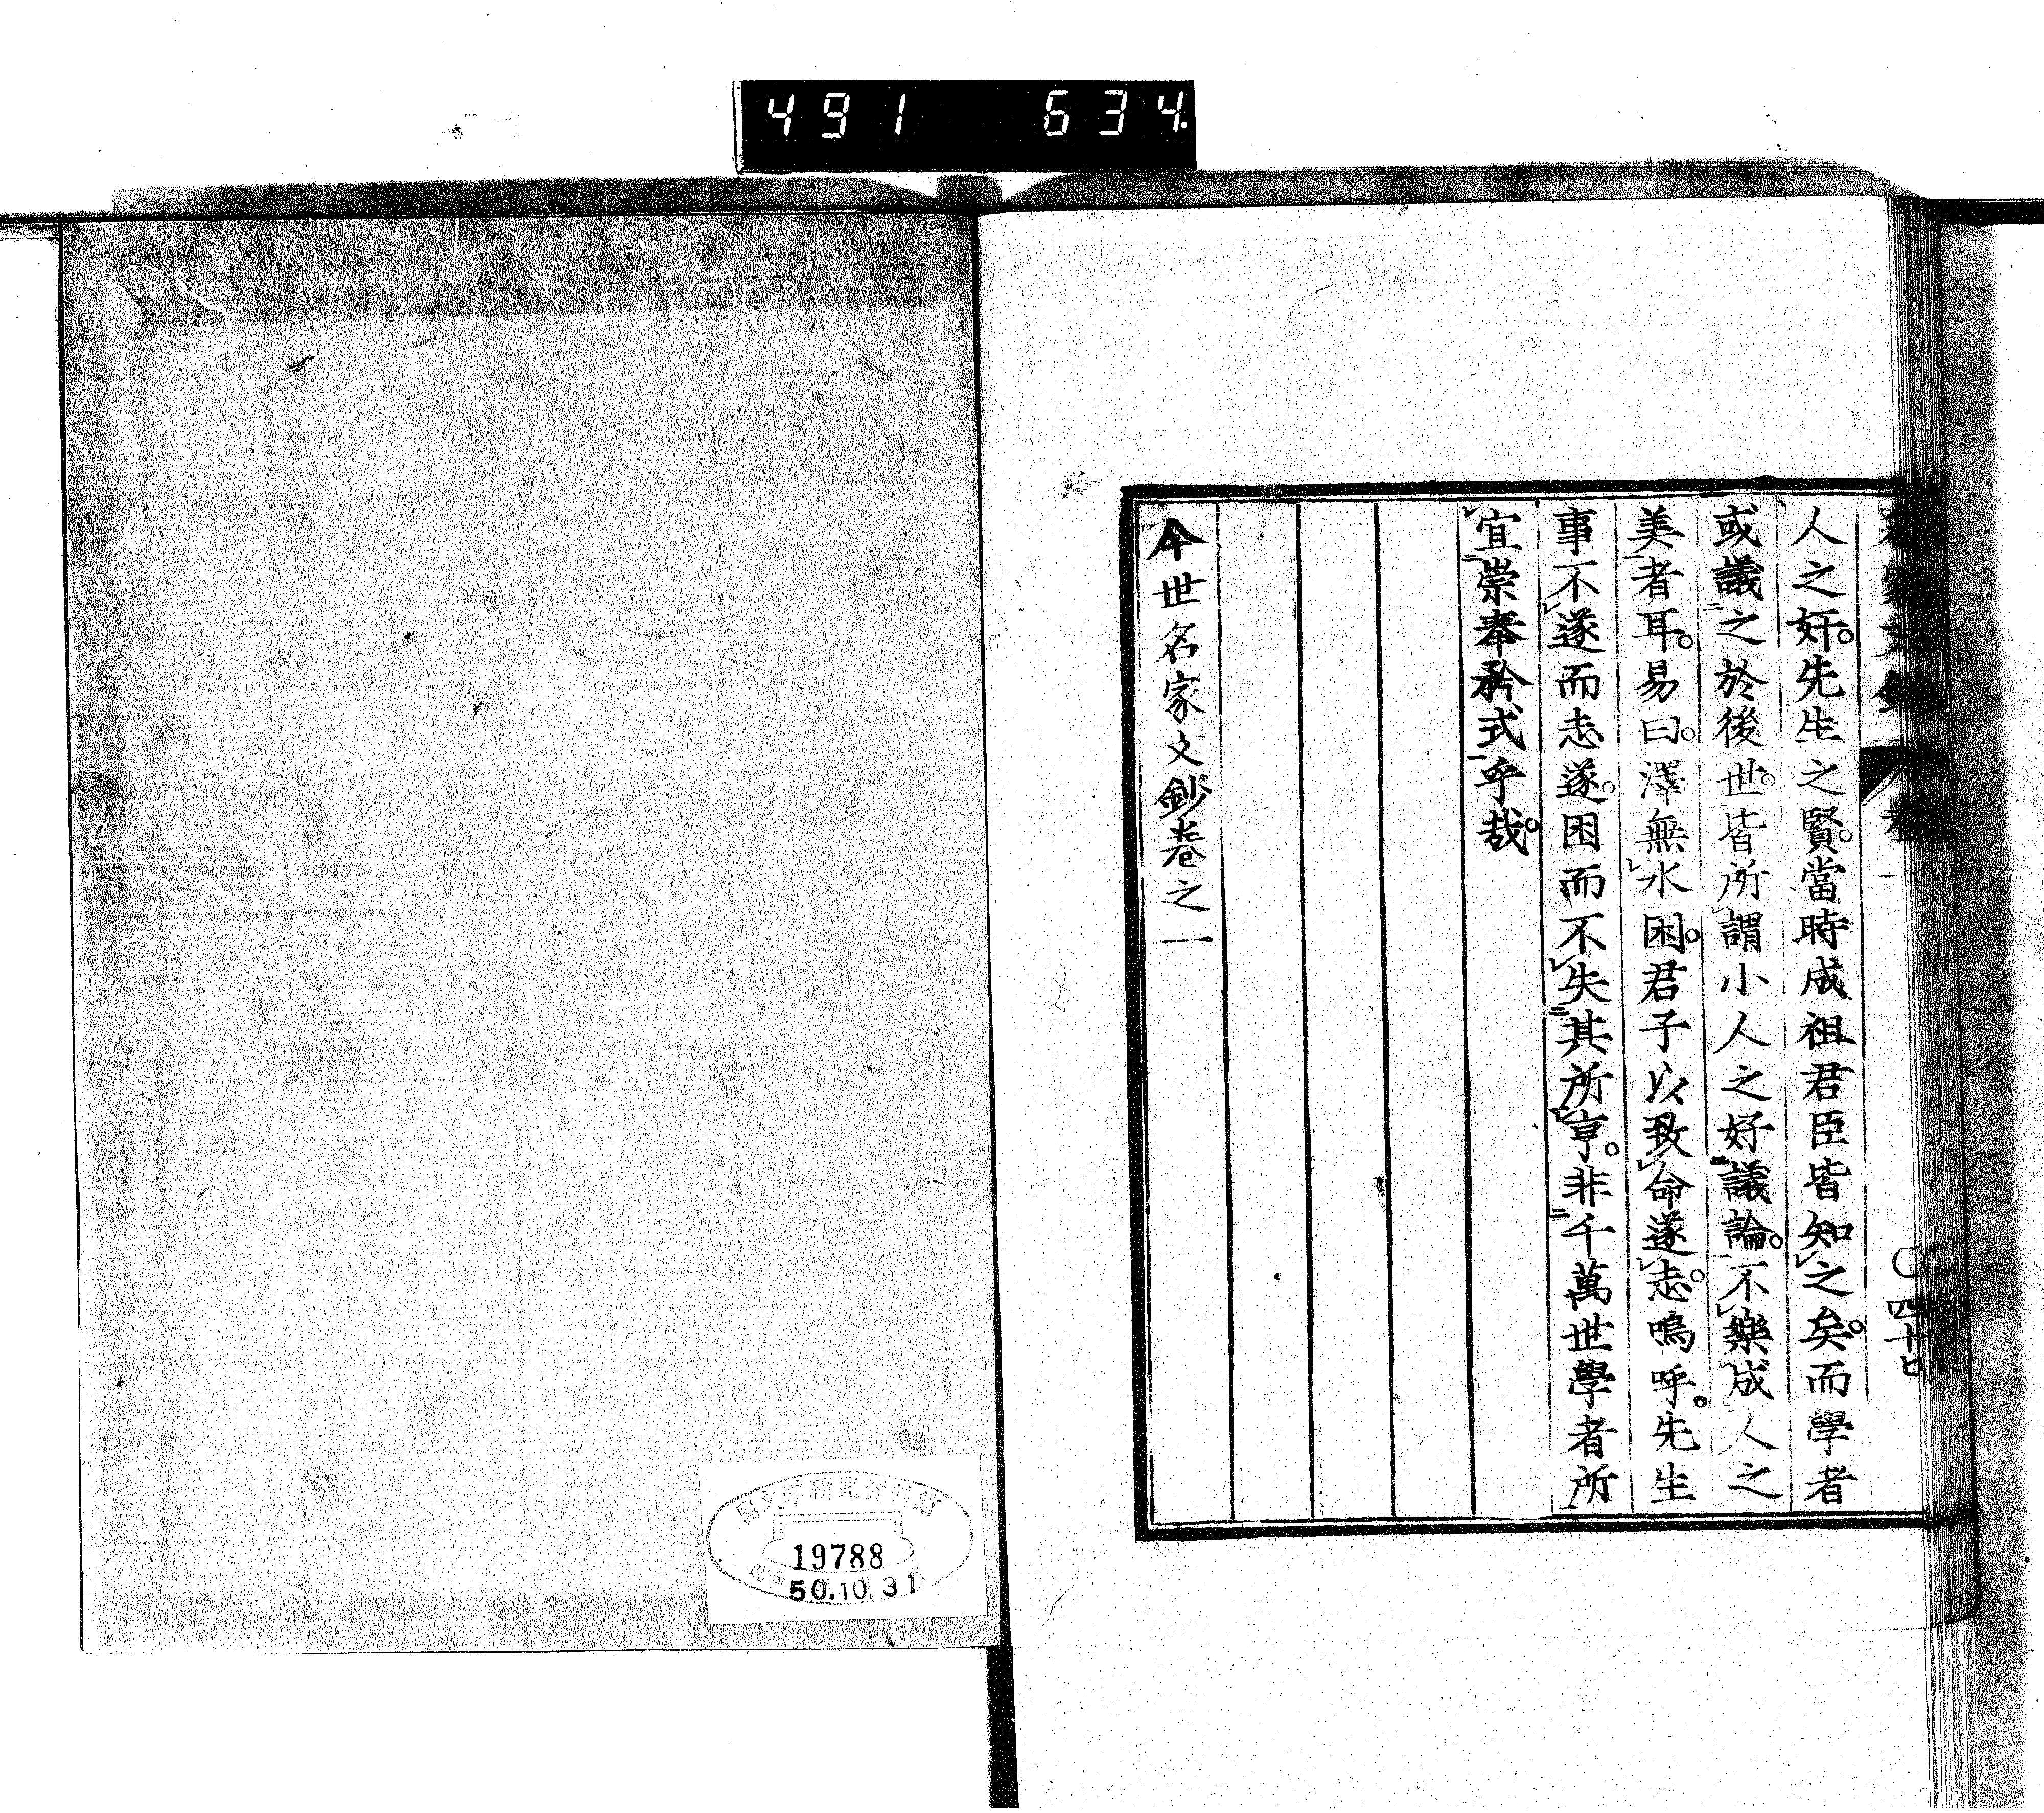 491 634
人之奸。先生之賢。當時成祖君臣皆知之矣。而學者
或議之於後世。皆所謂小人之好議論。不樂成人之
美者耳。易曰。澤無水困。君子以致命遂志。嗚呼。先生
事不遂而志遂。困而不失其所亨。非千萬世學者所
宜崇奉矜式乎哉。
今世名家文鈔卷之一
四十七
19788
50.10.31